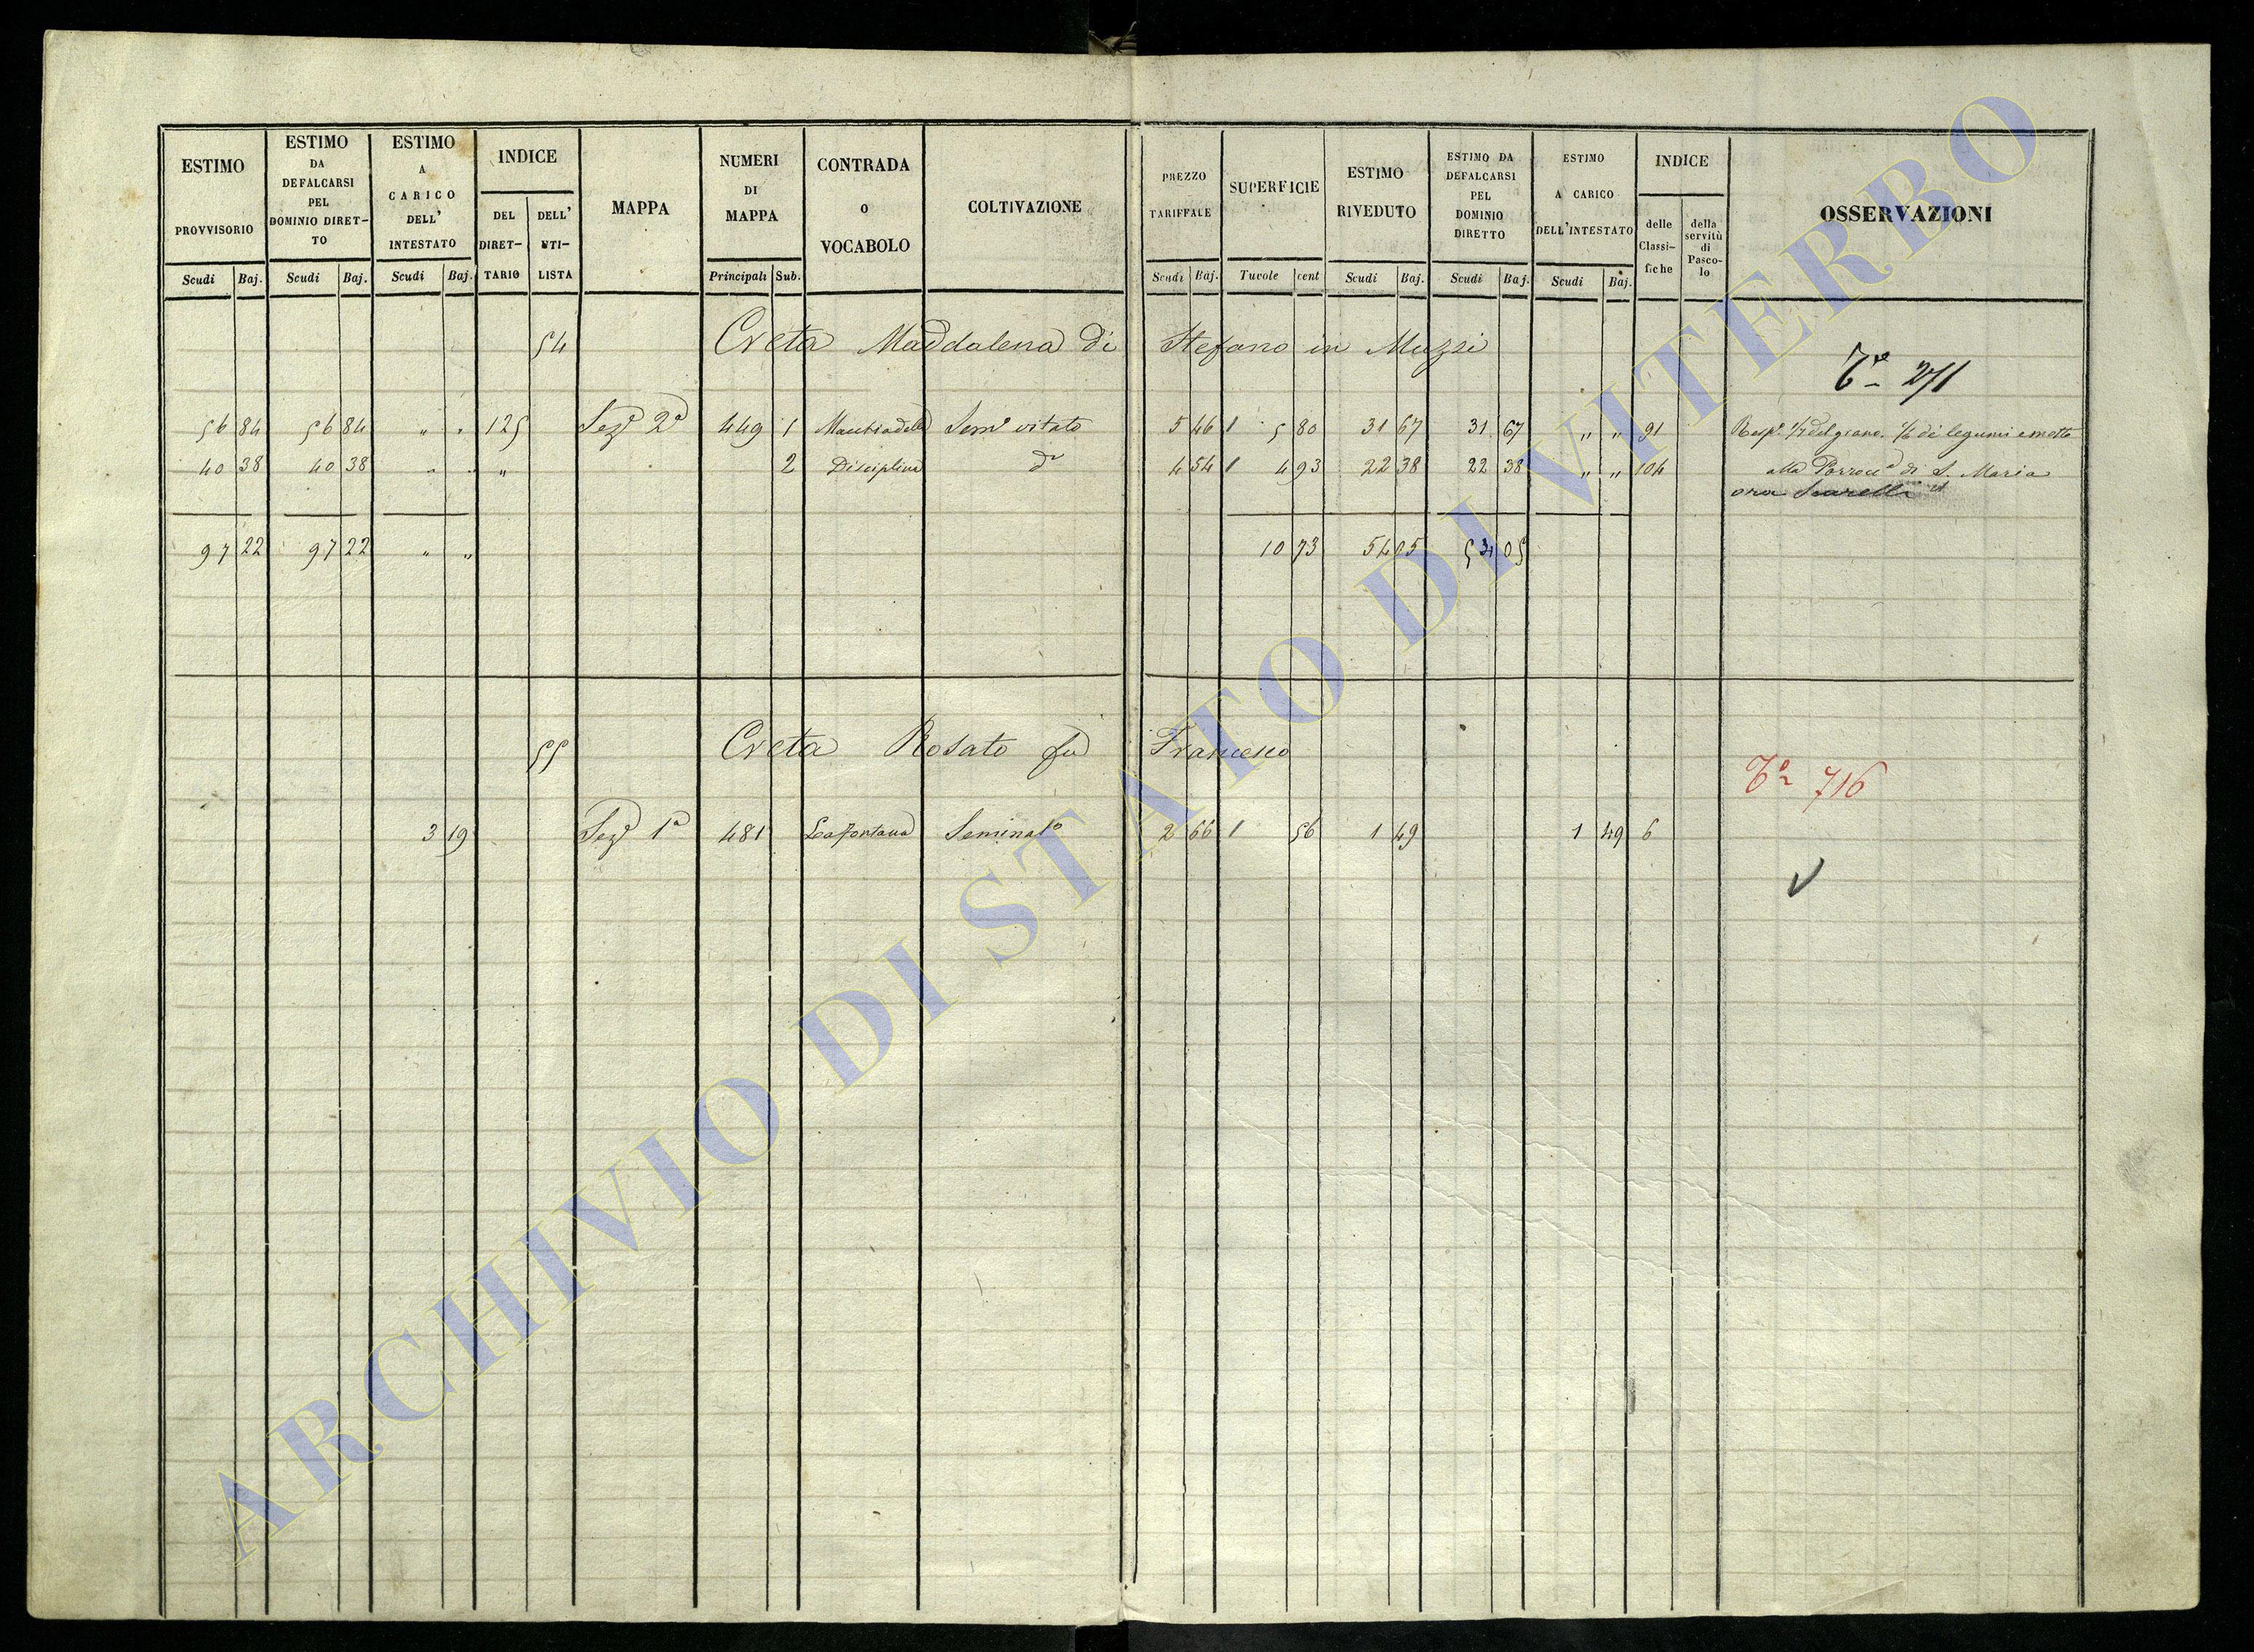 ESTIMO PROVVISORIO Scudi Baj.
ESTIMO DA DEFALCARSI PEL DOMINIO DIRET-TO Scudi Baj.
ESTIMO A CARICO DELL' INTESTATO Scudi Baj.
INDICE DEL DIRET-TARIO DELL' UTI-LISTA
MAPPA
NUMERI DI MAPPA Principali Sub.
CONTRADA O VOCABOLO
COLTIVAZIONE
PREZZO TARIFFALE Scudi Baj.
SUPERFICIE Tavole cent
ESTIMO RIVEDUTO Scudi Baj.
ESTIMO DA DEFALCARSI PEL DOMINIO DIRETTO Scudi Baj.
ESTIMO A CARICO DELL'INTESTATO Scudi Baj.
INDICE delle Classi-fiche della servitù di Pasco-lo
OSSERVAZIONI
54 Creta Maddalena di Stefano in Muzzi
271
56 84 56 84 " " 125 Seze 2a 449 1 Macchiadella Semo vitato 5 46 1 5 80 31 67 31 67 " " 91 Respe 1/7 del grano. 1/6 di legumi e mosto
40 38 40 38 " " " 2 Disciplina do 4 54 1 4 93 22 38 22 38 " " 104 alla Parrocca di S. Maria
ora
97 22 97 22 " " 10 73 54 05 54 05
55 Creta Rosato fu Francesco
716
3 19 Seze 1a 481 Lafontana Seminato 2 66 1 56 1 49 1 49 6
ARCHIVIO DI STATO DI VITERBO